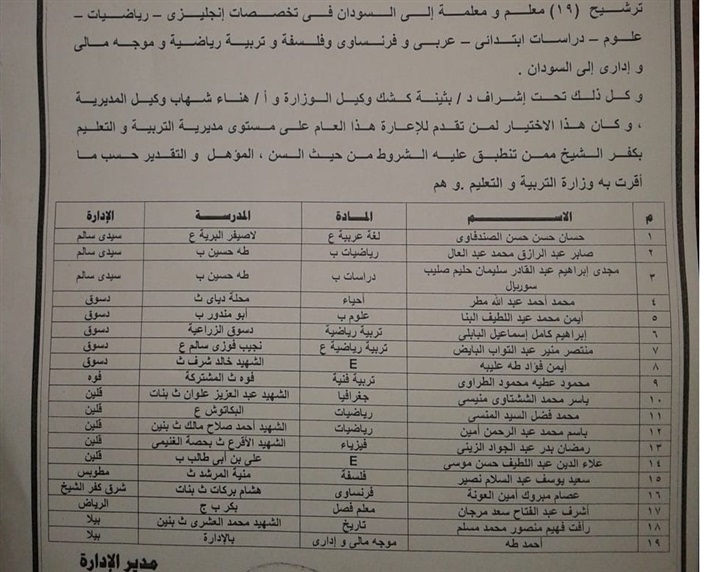 ترشيح (١٩) معلم و معلمة إلى السودان فى تخصصات إنجليزى – رياضيات –
علوم – دراسات ابتدائى – عربى و فرنساوى وفلسفة و تربية رياضية و موجه مالى
و إدارى إلى السودان .
و كل ذلك تحت إشراف د / بثينة كشك وكيل الوزارة و أ / هناء شهاب وكيل المديرية
، و كان هذا الاختيار لمن تقدم للإعارة هذا العام على مستوى مديرية التربية و التعليم
بكفر الشيخ ممن تنطبق عليه الشروط من حيث السن ، المؤهل و التقدير حسب ما
أقرت به وزارة التربية و التعليم .و هم
م الاســـم المـادة المدرسـة الإدارة
١ حسان حسن حسن الصندفاوى لغة عربية ع لاصيفر البرية ع سيدى سالم
٢ صابر عبد الرازق محمد عبد العال رياضيات ب طه حسين ب سيدى سالم
٣ مجدى إبراهيم عبد القادر سليمان حليم صليب دراسات ب طه حسين ب سيدى سالم
سوريال
٤ محمد أحمد عبد الله مطر أحياء محلة دياى ث دسوق
٥ أيمن محمد عبد اللطيف البنا علوم ب أبو مندور ب دسوق
٦ إبراهيم كامل إسماعيل البابلى تربية رياضية دسوق الزراعية دسوق
٧ منتصر منير عبد التواب البايض تربية رياضية ع نجيب فوزى سالم ع دسوق
٨ أيمن فؤاد طه عليبه E الشهيد خالد شرف ث دسوق
٩ محمود عطيه محمود الطراوى تربية فنية فوه ث المشتركة فوه
١٠ ياسر محمد الششتاوى منيسى جغرافيا الشهيد عبد العزيز علوان ث بنات قلين
١١ محمد فضل السيد المنسى رياضيات البكاتوش ع قلين
١٢ باسم محمد عبد الرحمن أمين رياضيات الشهيد أحمد صلاح مالك ث بنين قلين
١٣ رمضان بدر عبد الجواد الزينى فيزياء الشهيد الأقرع ث بحصة الغنيمى قلين
١٤ علاء الدين عبد اللطيف حسن موسى E على بن أبي طالب ب قلين
١٥ سعيد يوسف عبد السلام نصير فلسفة منية المرشد ث مطوبس
١٦ عصام مبروك أمين العونة فرنساوى هشام بركات ث بنات شرق كفر الشيخ
١٧ أشرف عبد الفتاح سعد مرجان معلم فصل بكر ب ج الرياض
١٨ رأفت فهيم منصور محمد مسلم تاريخ الشهيد محمد العشرى ث بنين بيلا
١٩ أحمد طه موجه مالى و إدارى بالإدارة بيلا
مدير الإدارة